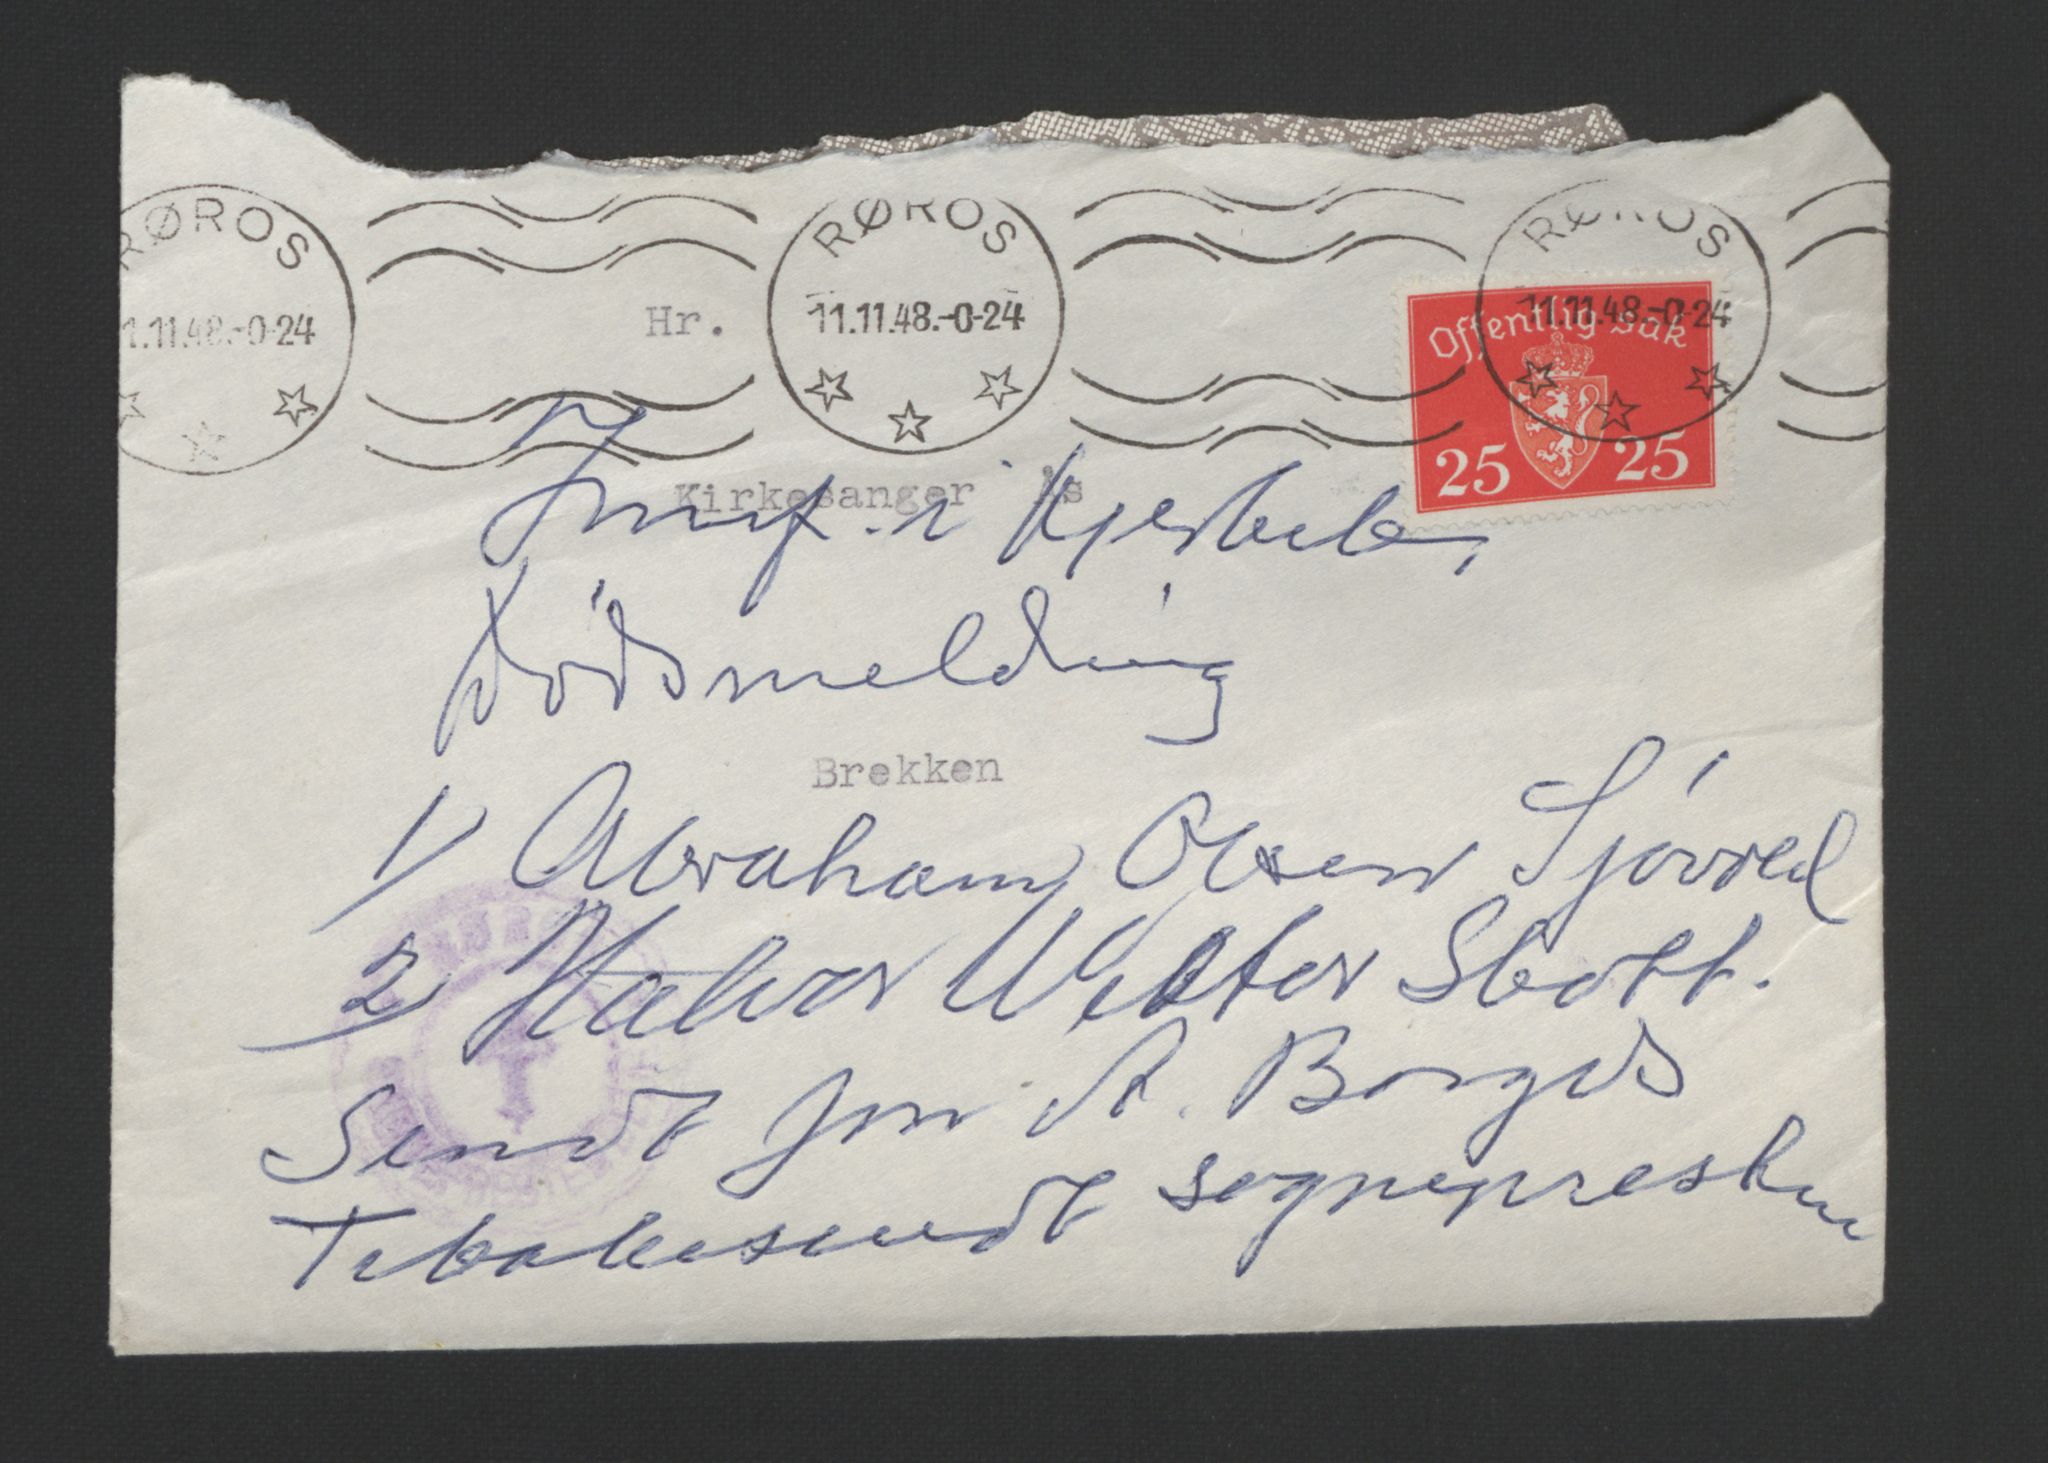 RØROS
11.11.48.-0-24
RØROS
11.11.48.-0-24
RØROS
11.11.48.-0-24
Offentlig Sak
25 25
Hr.
Kirkesanger Ås
Brekken
Innf. i Kjerkeb.
Dødsmelding
1/ Abraham Olsen Sjøvold
2 Halvor Wektor Stott.
Sendt Jon A. Borgos
Tebakesendt sognepresten